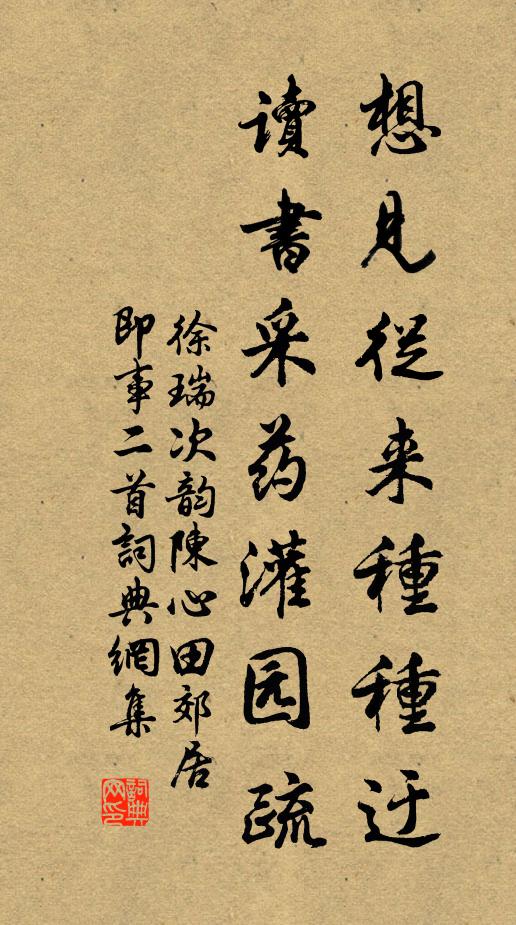 想見從来種種迂
讀書采药灌园疏
徐瑞次韵陳心田郊居
即事二首詞典網集
詞典网印